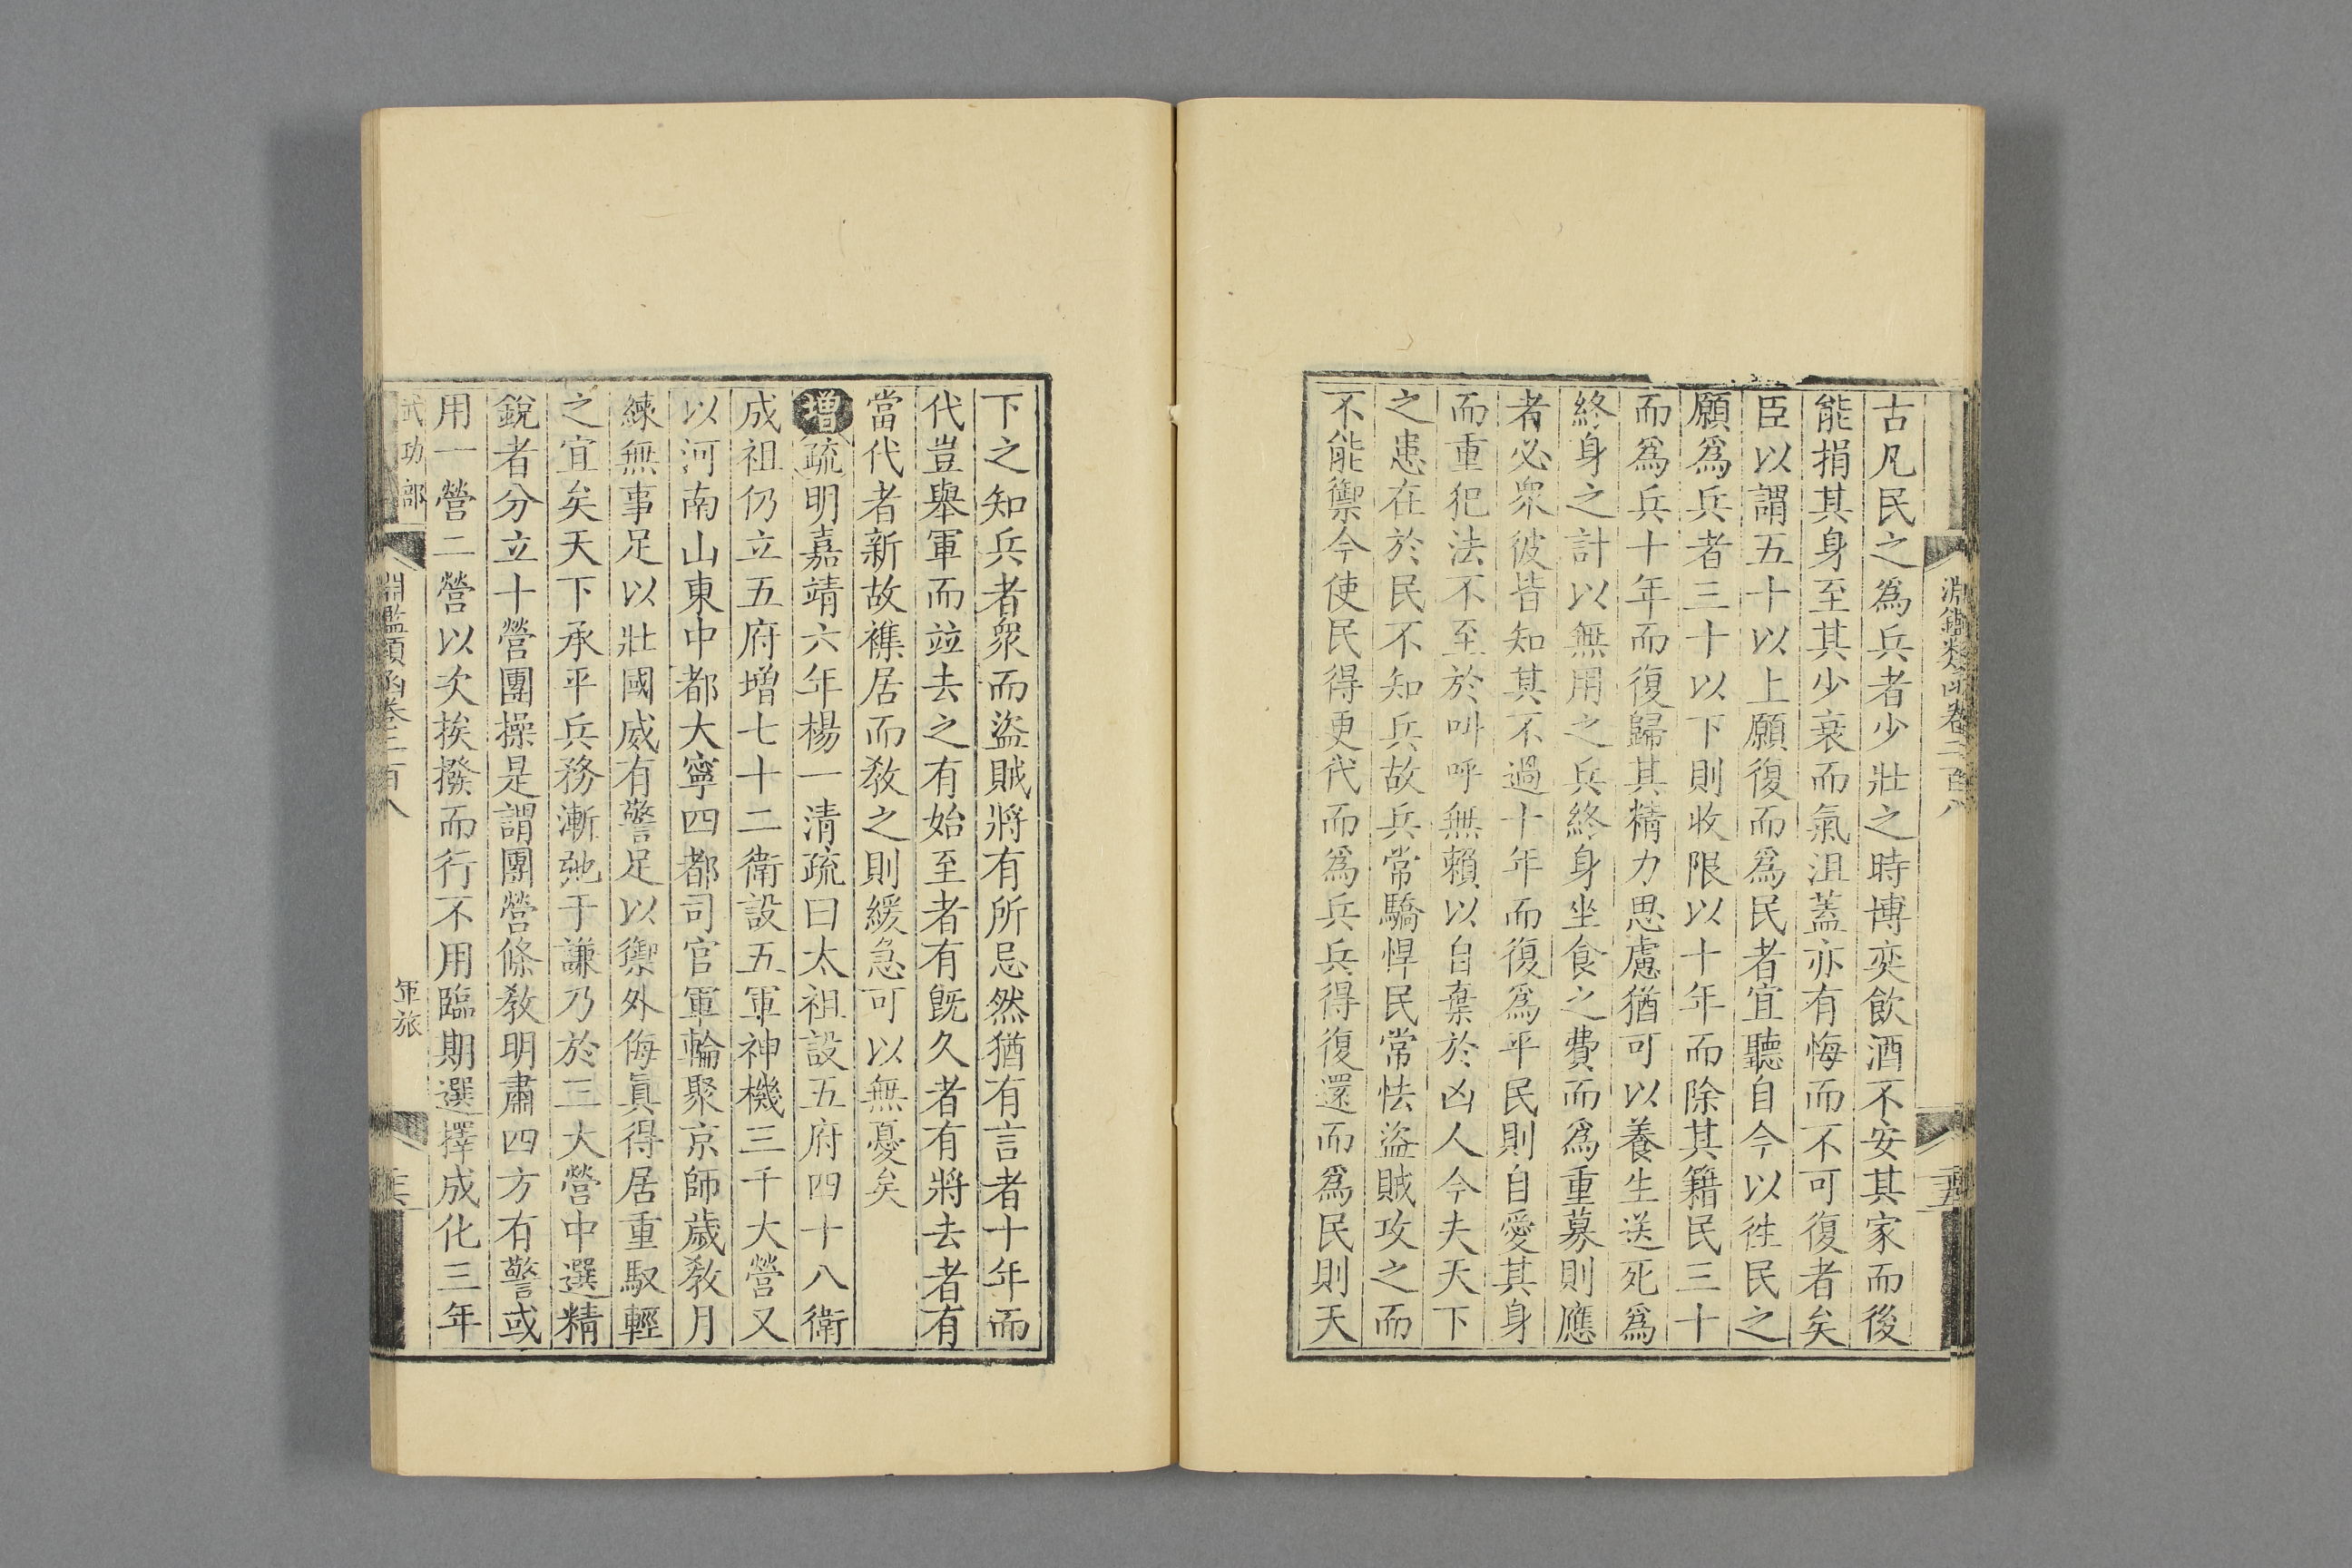 淵鑑類函卷二百八
古凡民之爲兵者少壯之時博奕飲酒不安其家而後
能捐其身至其少衰而氣沮蓋亦有悔而不可復者矣
臣以謂五十以上願復而爲民者宜聽自今以徃民之
願爲兵者三十以下則收限以十年而除其籍民三十
而爲兵十年而復歸其精力思慮猶可以養生送死爲
終身之計以無用之兵終身坐食之費而爲重募則應
者必衆彼皆知其不過十年而復爲平民則自愛其身
而重犯法不至於叫呼無賴以自棄於凶人今夫天下
之患在於民不知兵故兵常驕悍民常怯盜賊攻之而
不能禦今使民得更代而爲兵兵得復還而爲民則天
下之知兵者衆而盜賊將有所忌然猶有言者十年而
代豈舉軍而竝去之有始至者有旣久者有將去者有
當代者新故襍居而敎之則緩急可以無憂矣
增疏明嘉靖六年楊一清疏曰太祖設五府四十八衛
成祖仍立五府增七十二衛設五軍神機三千大營又
以河南山東中都大寧四都司官軍輪聚京師歲敎月
練無事足以壯國威有警足以禦外侮眞得居重馭輕
之宜矣天下承平兵務漸弛于謙乃於三大營中選精
銳者分立十營團操是謂團營條敎明肅四方有警或
用一營二營以次挨撥而行不用臨期選擇成化三年
武功部 淵鑑類函卷二百八 軍旅